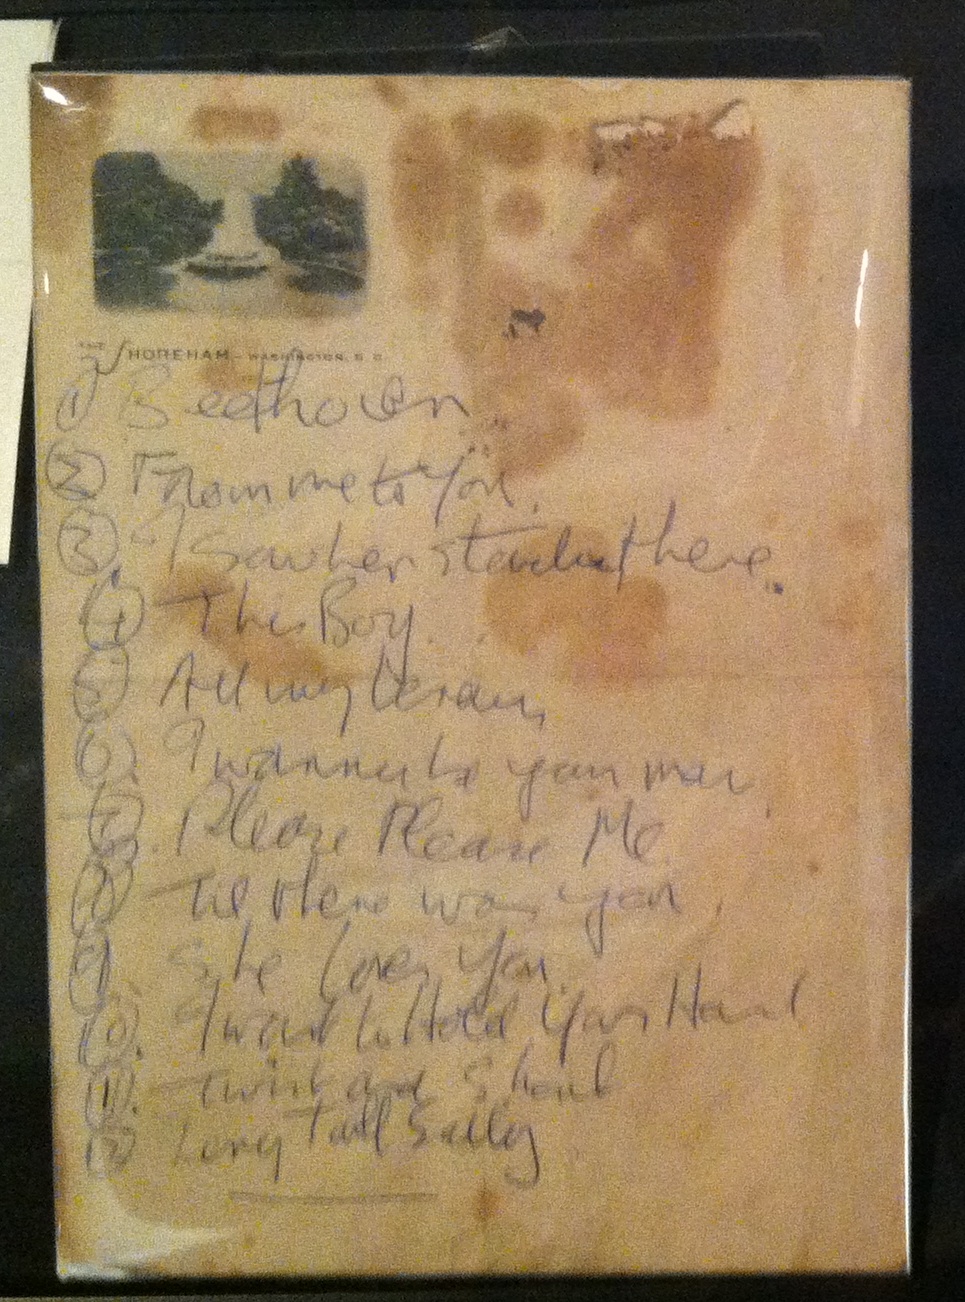 SHOREHAM - WASHINGTON, D.C.
① Beethoven
② From me to You.
③ I Saw her standing there.
④ This Boy.
⑤ All my
⑥ I wanna be your man
⑦ Please Please Me
⑧ Till there was you
⑨ She loves You
⑩ I want to Hold Your Hand
⑪ Twist and Shout
⑫ Long Tall Sally